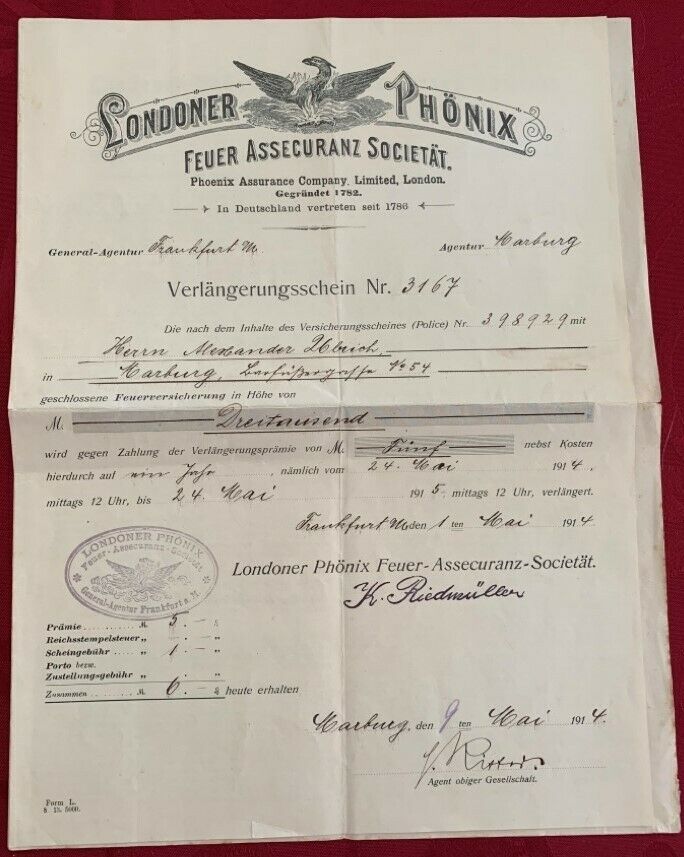 LONDONER PHÖNIX
FEUER ASSECURANZ SOCIETÄT.
Phoenix Assurance Company, Limited, London.
Gegründet 1782.
In Deutschland vertreten seit 1786
General-Agentur Frankfurt M. Agentur Marburg
Verlängerungsschein Nr. 3167
Die nach dem Inhalte des Versicherungsscheines (Police) Nr. 398929 mit
Herrn Alexander Ubrich,
in Marburg, Barfüßergasse No 54
geschlossene Feuerversicherung in Höhe von
M. Dreitausend
wird gegen Zahlung der Verlängerungsprämie von M. Fünf nebst Kosten
hierdurch auf ein Jahr, nämlich vom 24. Mai 1914,
mittags 12 Uhr, bis 24. Mai 1915, mittags 12 Uhr, verlängert.
Frankfurt M. den 1 ten Mai 1914
LONDONER PHÖNIX
Feuer-Assecuranz-Societät
General-Agentur Frankfurt a. M.
Londoner Phönix Feuer-Assecuranz-Societät.
K. Riedmüller
Prämie M. 5.—
Reichsstempelsteuer „ .—
Scheingebühr „ 1.—
Porto bezw.
Zustellungsgebühr „
Zusammen M. 6.— heute erhalten
Marburg, den 9 ten Mai 1914.
Agent obiger Gesellschaft.
Form L.
5000.